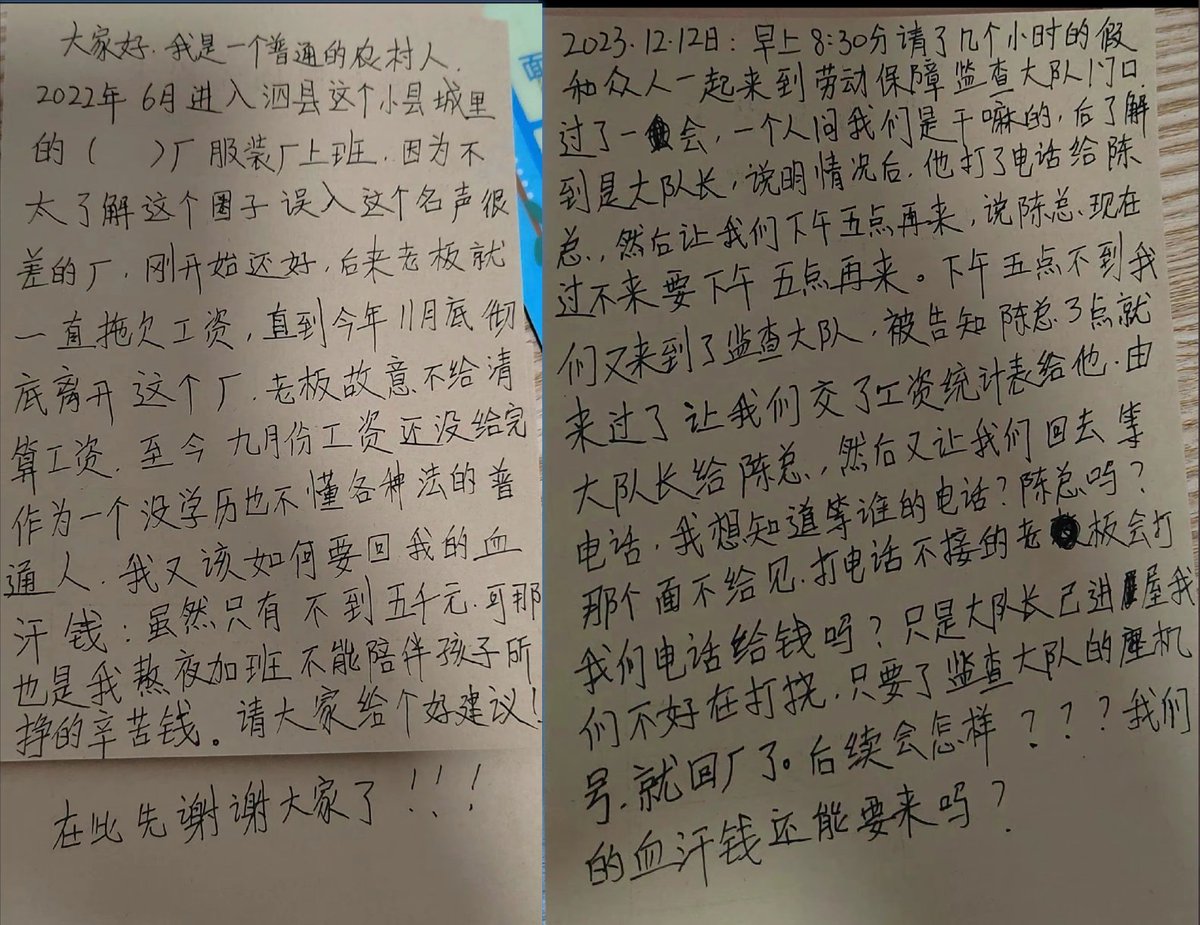 大家好.我是一个普通的农村人.
2022年6月进入泗县这个小县城里
的（ ）厂服装厂上班.因为不
太了解这个圈子误入这个名声很
差的厂,刚开始还好,后来老板就
一直拖欠工资,直到今年11月底彻
底离开这个厂.老板故意不给清
算工资.至今九月份工资还没给完
作为一个没学历也不懂各种法的普
通人.我又该如何要回我的血
汗钱:虽然只有不到五千元.可那
也是我熬夜加班不能陪伴孩子所
挣的辛苦钱。请大家给个好建议!
在此先谢谢大家了!!!
2023.12.12日:早上8:30分请了几个小时的假
和众人一起来到劳动保障监查大队门口
过了一会,一个人问我们是干嘛的,后了解
到是大队长,说明情况后.他打了电话给陈
总,然后让我们下午五点再来,说陈总现在
过不来要下午五点再来。下午五点不到我
们又来到了监查大队,被告知陈总3点就
来过了让我们交了工资统计表给他.由
大队长给陈总,然后又让我们回去等
电话,我想知道等谁的电话?陈总吗?
那个面不给见.打电话不接的老板会打
我们电话给钱吗?只是大队长已进屋我
们不好在打扰,只要了监查大队的座机
号.就回厂了。后续会怎样???我们
的血汗钱还能要来吗?